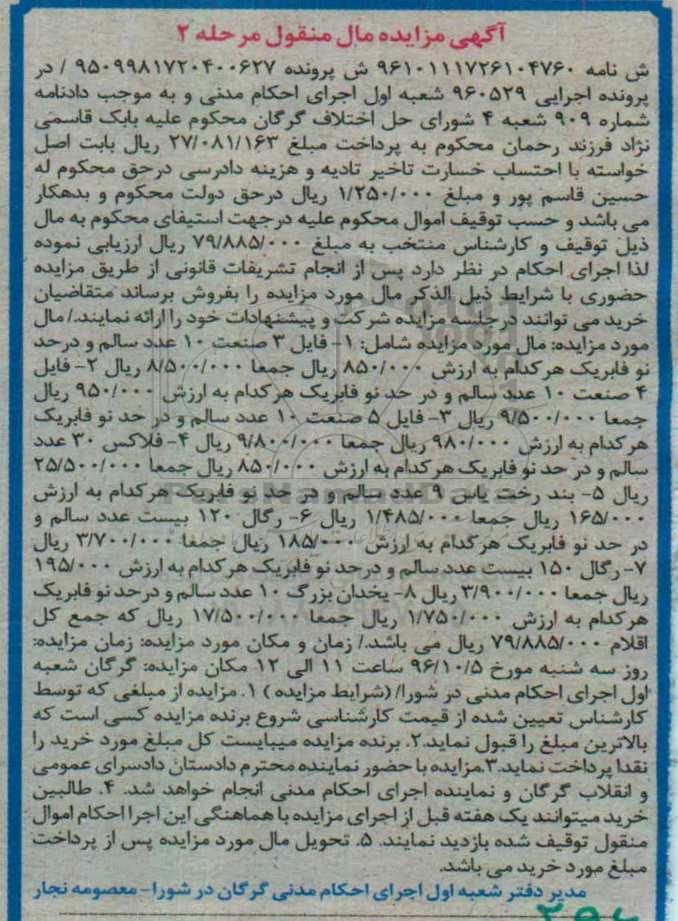 آگهی مزایده مال منقول مرحله ۲
ش نامه ۹۶۱۰۱۱۱۷۲۶۱۰۴۷۶۰ ش پرونده ۹۵۰۹۹۸۱۷۲۰۴۰۰۶۲۷ / در
پرونده اجرایی ۹۶۰۵۲۹ شعبه اول اجرای احکام مدنی و به موجب دادنامه
شماره ۹۰۹ شعبه ۴ شورای حل اختلاف گرگان محکوم علیه بابک قاسمی
نژاد فرزند رحمان محکوم به پرداخت مبلغ ۲۷/۰۸۱/۱۶۳ ریال بابت اصل
خواسته با احتساب خسارت تاخیر تادیه و هزینه دادرسی درحق محکوم له
حسین قاسم پور و مبلغ ۱/۲۵۰/۰۰۰ ریال درحق دولت محکوم و بدهکار
می باشد و حسب توقیف اموال محکوم علیه درجهت استیفای محکوم به مال
ذیل توقیف و کارشناس منتخب به مبلغ ۷۹/۸۸۵/۰۰۰ ریال ارزیابی نموده
لذا اجرای احکام در نظر دارد پس از انجام تشریفات قانونی از طریق مزایده
حضوری با شرایط ذیل الذکر مال مورد مزایده را بفروش برساند متقاضیان
خرید می توانند درجلسه مزایده شرکت و پیشنهادات خود را ارائه نمایند./ مال
مورد مزایده: مال مورد مزایده شامل: ۱- فایل ۳ صنعت ۱۰ عدد سالم و درحد
نو فابریک هرکدام به ارزش ۸۵۰/۰۰۰ ریال جمعا ۸/۵۰۰/۰۰۰ ریال ۲- فایل
۴ صنعت ۱۰ عدد سالم و در حد نو فابریک هرکدام به ارزش ۹۵۰/۰۰۰ ریال
جمعا ۹/۵۰۰/۰۰۰ ریال ۳- فایل ۵ صنعت ۱۰ عدد سالم و در حد نو فابریک
هرکدام به ارزش ۹۸۰/۰۰۰ ریال جمعا ۹/۸۰۰/۰۰۰ ریال ۴- فلاکس ۳۰ عدد
سالم و در حد نو فابریک هرکدام به ارزش ۸۵۰/۰۰۰ ریال جمعا ۲۵/۵۰۰/۰۰۰
ریال ۵- بند رخت یاس ۹ عدد سالم و در حد نو فابریک هرکدام به ارزش
۱۶۵/۰۰۰ ریال جمعا ۱/۴۸۵/۰۰۰ ریال ۶- رگال ۱۲۰ بیست عدد سالم و
در حد نو فابریک هرکدام به ارزش ۱۸۵/۰۰۰ ریال جمعا ۳/۷۰۰/۰۰۰ ریال
۷- رگال ۱۵۰ بیست عدد سالم و درحد نو فابریک هرکدام به ارزش ۱۹۵/۰۰۰
ریال جمعا ۳/۹۰۰/۰۰۰ ریال ۸- یخدان بزرگ ۱۰ عدد سالم و درحد نو فابریک
هرکدام به ارزش ۱/۷۵۰/۰۰۰ ریال جمعا ۱۷/۵۰۰/۰۰۰ ریال که جمع کل
اقلام ۷۹/۸۸۵/۰۰۰ ریال می باشد./ زمان و مکان مورد مزایده: زمان مزایده:
روز سه شنبه مورخ ۹۶/۱۰/۵ ساعت ۱۱ الی ۱۲ مکان مزایده: گرگان شعبه
اول اجرای احکام مدنی در شورا/ (شرایط مزایده ) ۱. مزایده از مبلغی که توسط
کارشناس تعیین شده از قیمت کارشناسی شروع برنده مزایده کسی است که
بالاترین مبلغ را قبول نماید.۲. برنده مزایده میبایست کل مبلغ مورد خرید را
نقدا پرداخت نماید.۳.مزایده با حضور نماینده محترم دادستان دادسرای عمومی
و انقلاب گرگان و نماینده اجرای احکام مدنی انجام خواهد شد. ۴. طالبین
خرید میتوانند یک هفته قبل از اجرای مزایده با هماهنگی این اجرا احکام اموال
منقول توقیف شده بازدید نمایند. ۵. تحویل مال مورد مزایده پس از پرداخت
مبلغ مورد خرید می باشد.
مدیر دفتر شعبه اول اجرای احکام مدنی گرگان در شورا- معصومه نجار